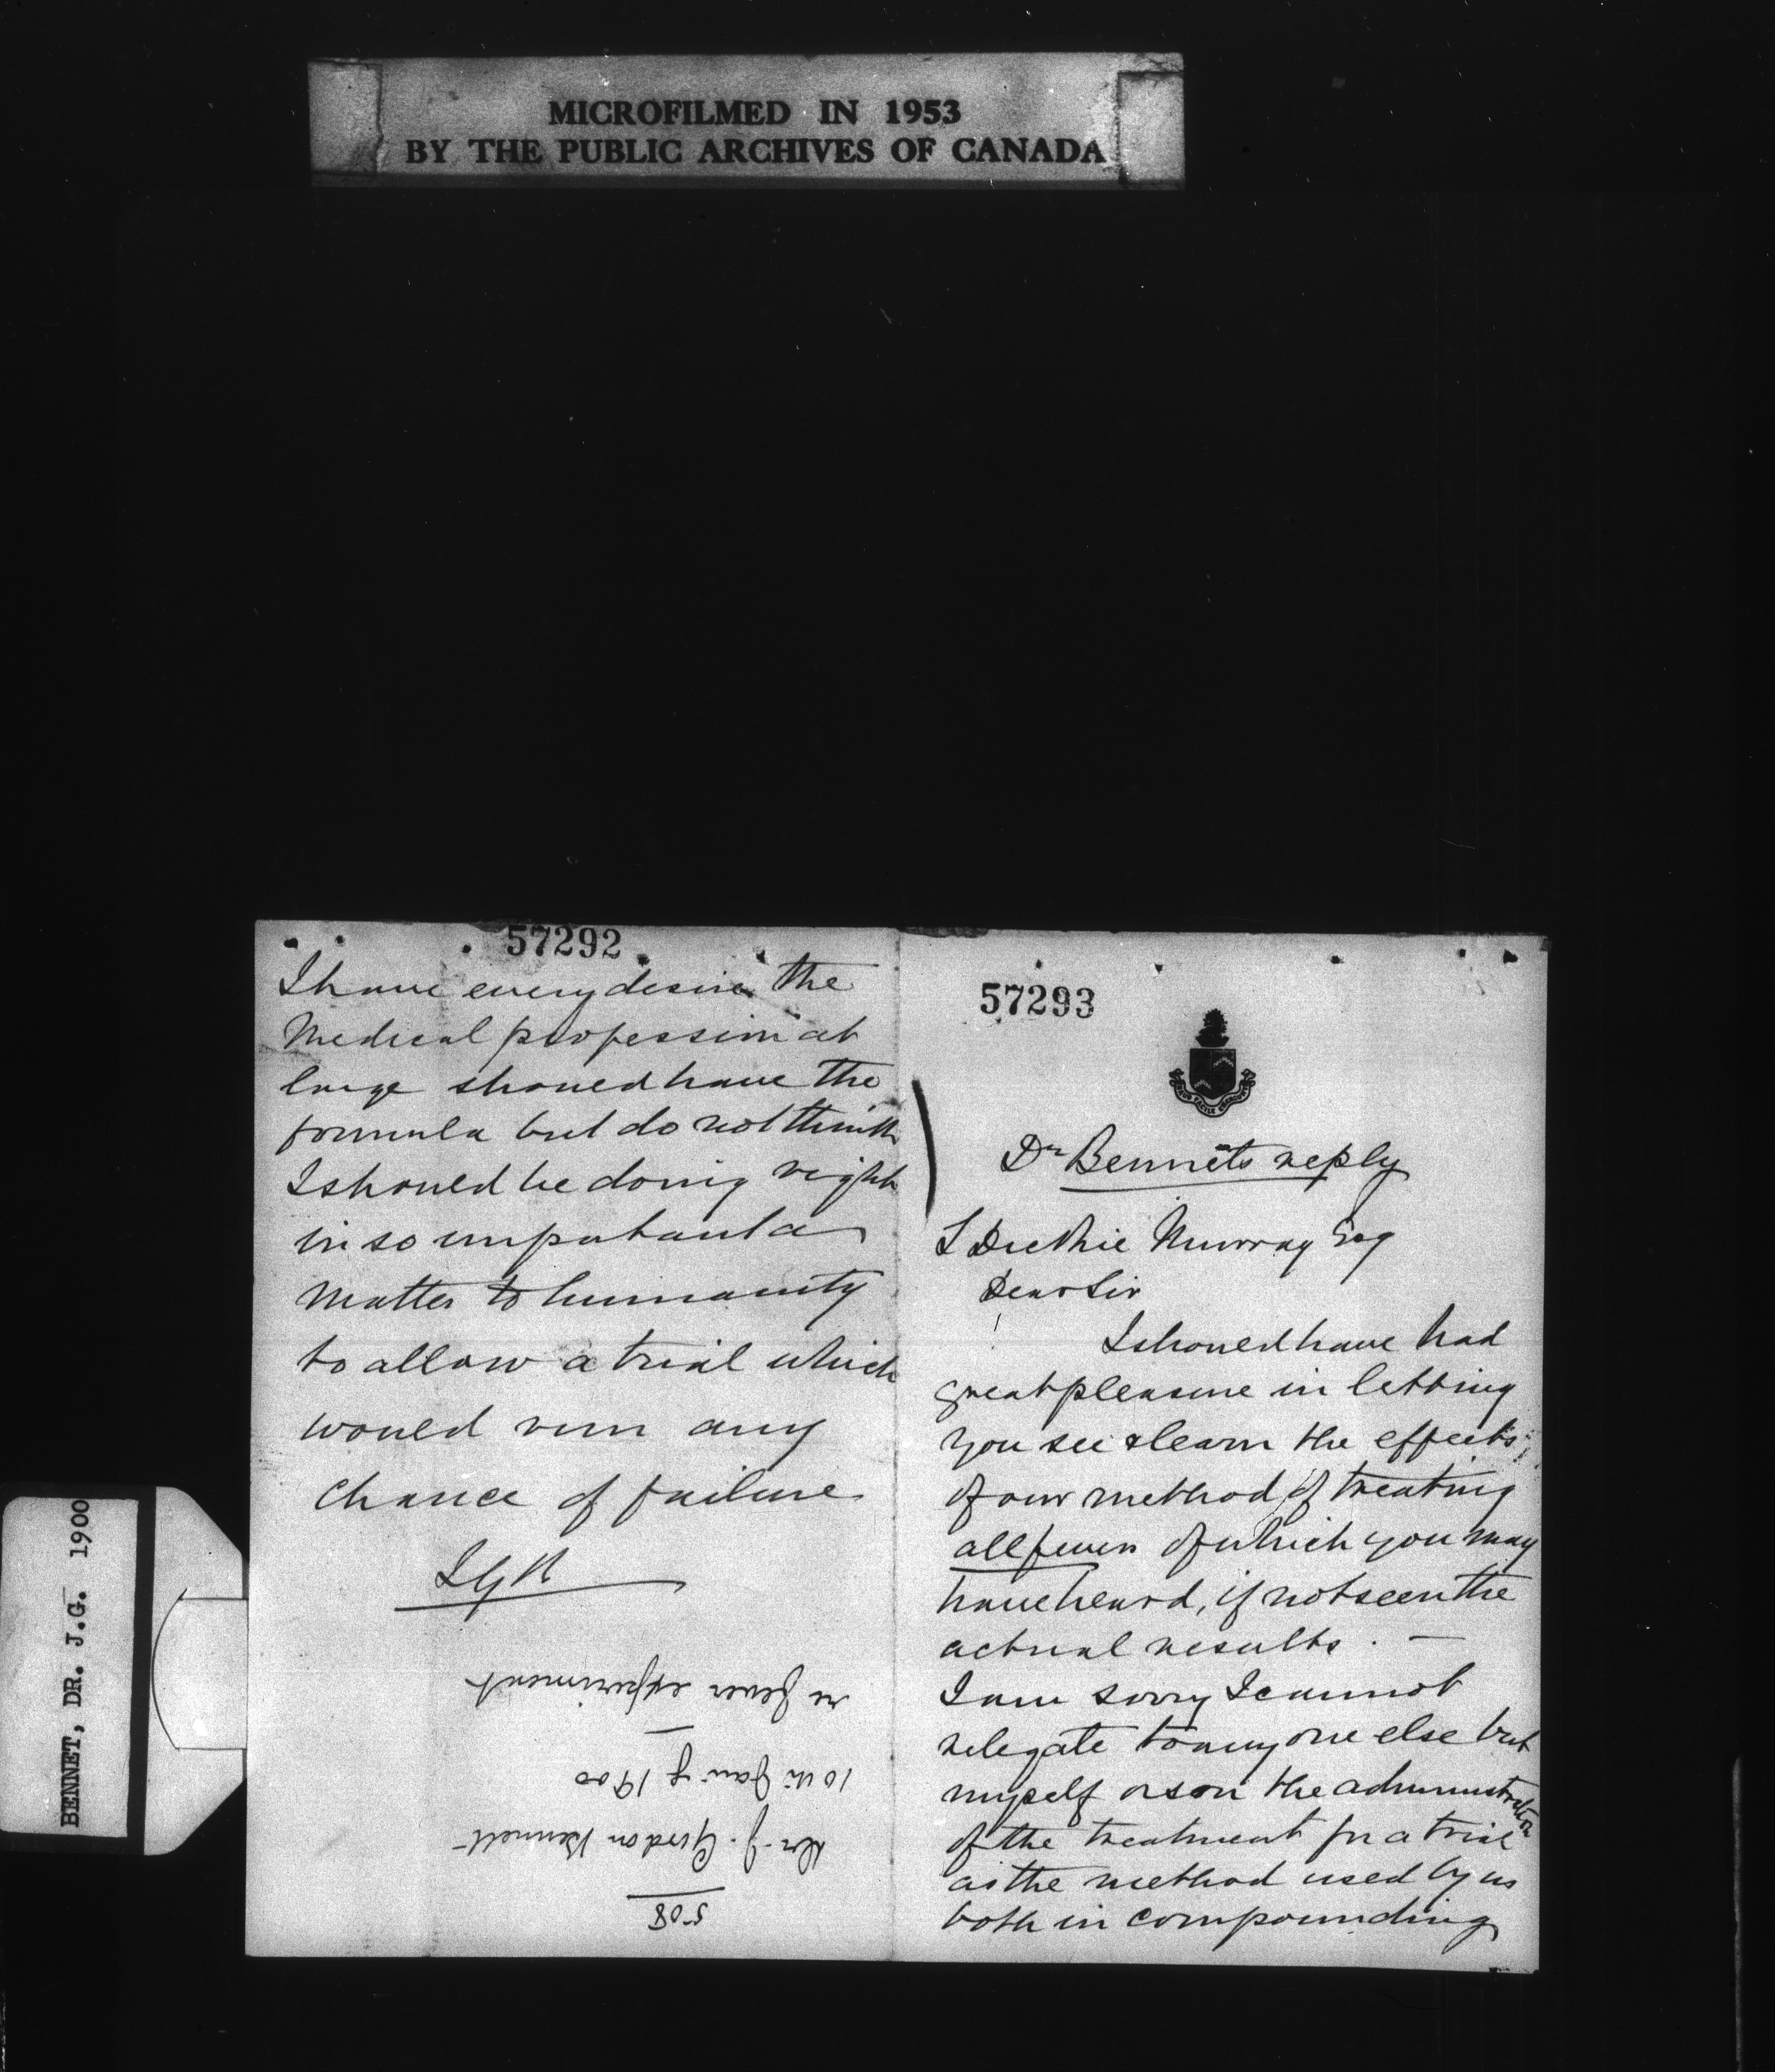 MICROFILMED IN 1953
BY THE PUBLIC ARCHIVES OF CANADA
BENNET, DR. J.G. 1900
57292
I have every desire the
Medical profession at
large should have the
formula but do not think
I should be doing right
in so important a
matter to humanity
to allow a trial which
would run any
chance of failure
508
Dr. J. Gordon Bennett
10th Jan'y 1900
re fever experiment
57293
Dr Bennets reply
Murray Esq
Dear Sir
I should have had
great pleasure in letting
you see & learn the effects
of our method of treating
all fevers of which you may
have heard, if not seen the
actual results. —
I am sorry I cannot
relegate to any one else but
myself or son the administration
of the treatment for a trial
as the method used by us
both in compounding